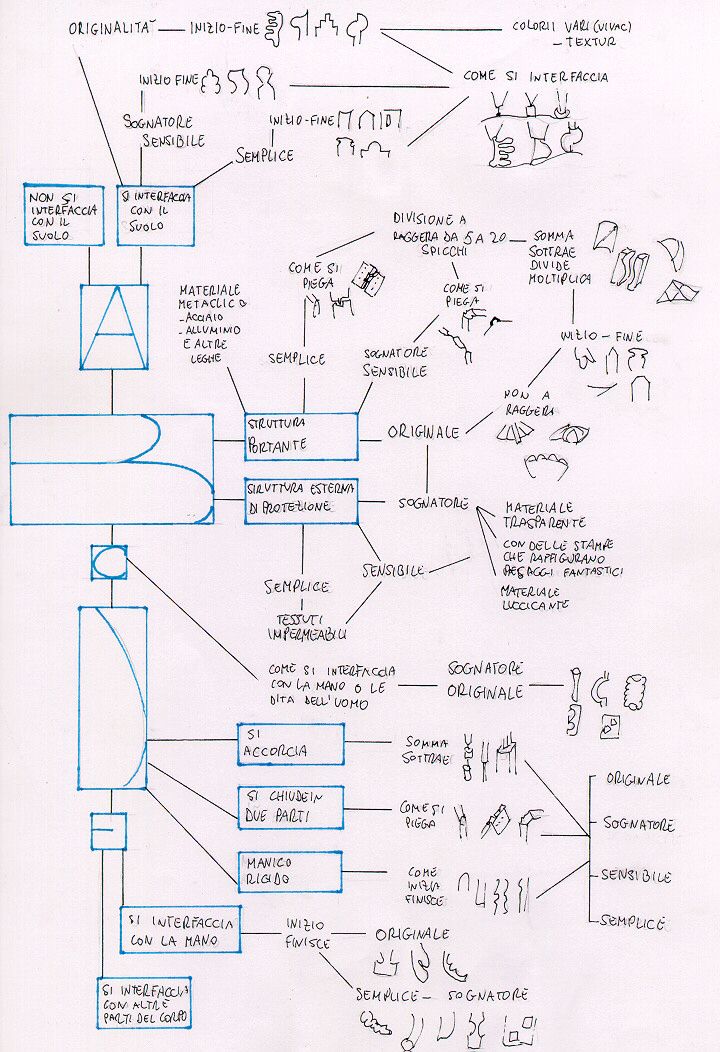 ORIGINALITA' — INIZIO-FINE
COLORI VARI (VIVAC)
- TEXTUR
INIZIO FINE
COME SI INTERFACCIA
SOGNATORE
SENSIBILE
INIZIO-FINE
SEMPLICE
NON SI
INTERFACCIA
CON IL
SUOLO
SI INTERFACCIA
CON IL
SUOLO
DIVISIONE A
RAGGERA DA 5 A 20
SPICCHI
SOMMA
SOTTRAE
DIVIDE
MOLTIPLICA
COME SI
PIEGA
MATERIALE
METALLICO
- ACCIAIO
- ALLUMINIO
E ALTRE
LEGHE
COME SI
PIEGA
A
INIZIO - FINE
SEMPLICE
SOGNATORE
SENSIBILE
NON A
RAGGERA
STRUTTURA
PORTANTE
ORIGINALE
STRUTTURA ESTERNA
DI PROTEZIONE
SOGNATORE
MATERIALE
TRASPARENTE
CON DELLE STAMPE
CHE RAFFIGURANO
PESAGGI FANTASTICI
MATERIALE
LUCCICANTE
SEMPLICE
SENSIBILE
TESSUTI
IMPERMEABILI
COME SI INTERFACCIA
CON LA MANO O LE
DITA DELL'UOMO
SOGNATORE
ORIGINALE
SI
ACCORCIA
SOMMA
SOTTRAE
ORIGINALE
SI CHIUDE IN
DUE PARTI
COME SI
PIEGA
SOGNATORE
MANICO
RIGIDO
COME
INIZIA
FINISCE
SENSIBILE
SEMPLICE
SI INTERFACCIA
CON LA MANO
INIZIO
FINISCE
ORIGINALE
SEMPLICE - SOGNATORE
SI INTERFACCIA
CON ALTRE
PARTI DEL CORPO